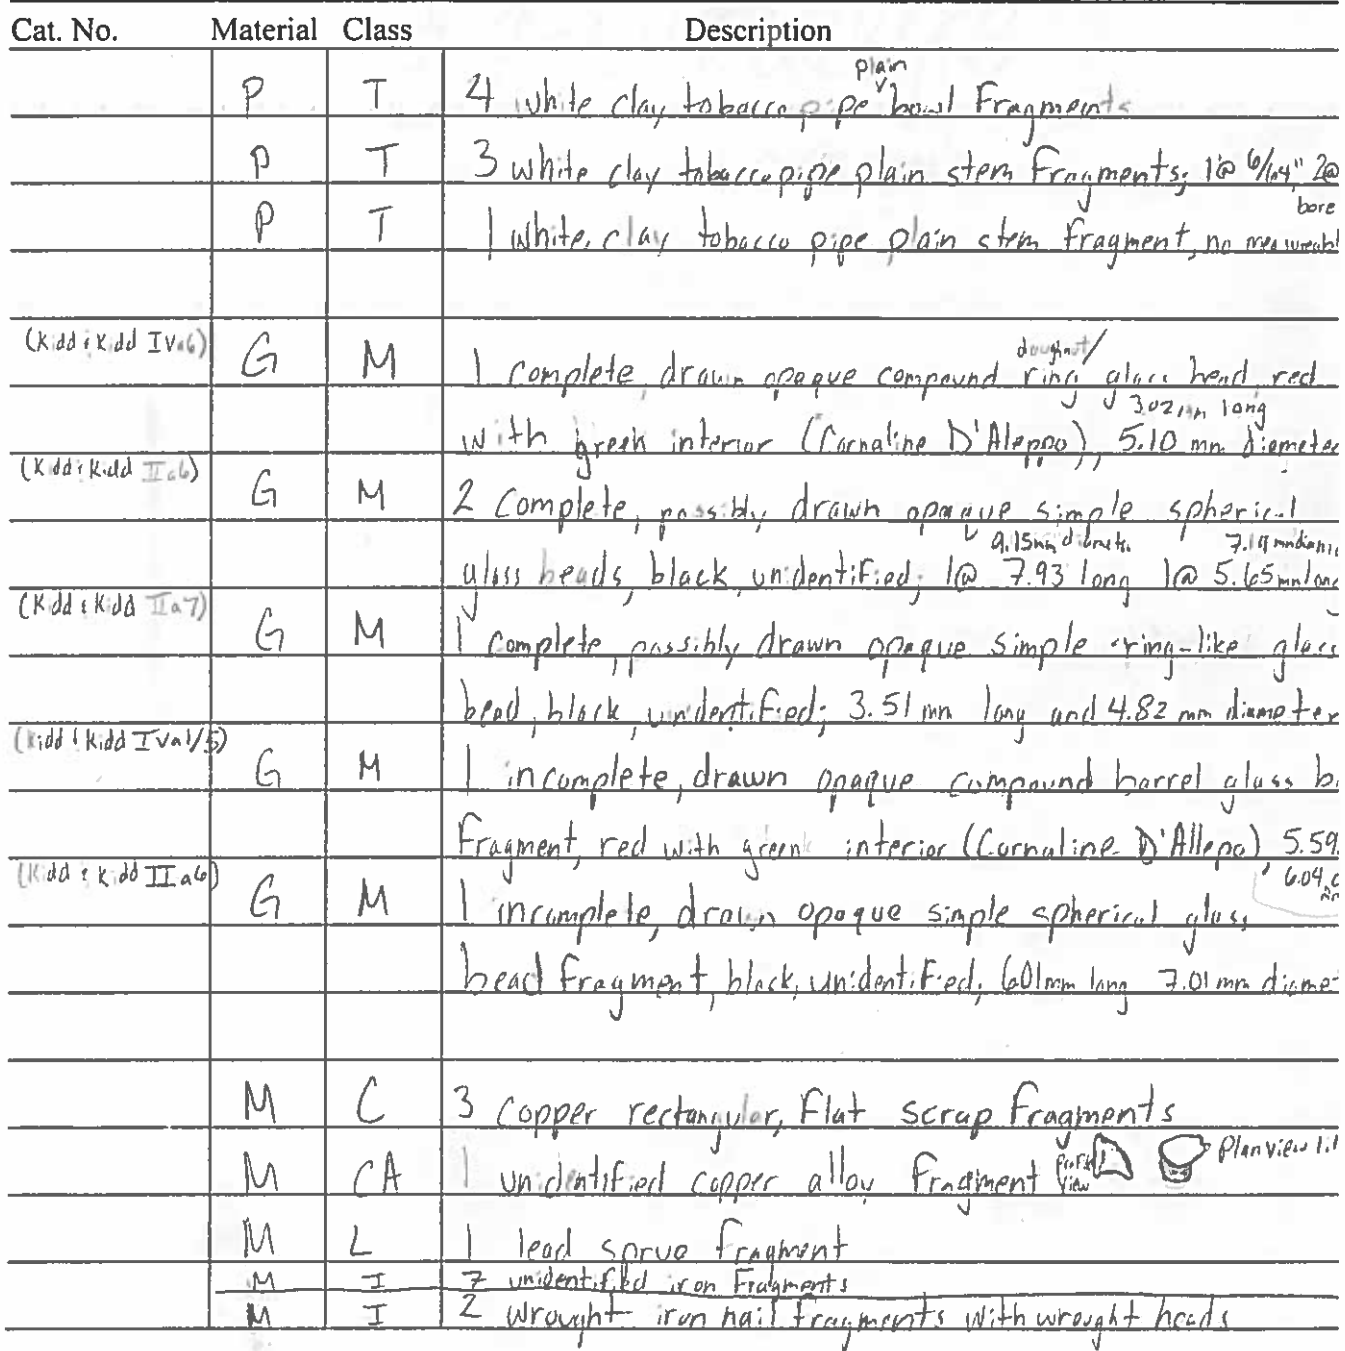 Cat. No. Material Class Description
P T 4 white clay tobacco pipe plain bowl Fragments
P T 3 white clay tobacco pipe plain stem fragments; 1@ 6/64" 2@
P T 1 white clay tobacco pipe plain stem fragment, no measureabl bore
(Kidd & Kidd IVa6) G M 1 complete, drawn opaque compound doughnut/ ring glass bead, red
with green interior (Cornaline D'Aleppo), 5.10 mm diameter 3.02mm long
(Kidd & Kidd IIa6) G M 2 Complete, possibly drawn opaque simple spherical
glass beads, black, unidentified; 1@ 7.93 long 9.15mm diamete. 1@ 5.65mm long
(Kidd & Kidd IIa7) G M 1 complete, possibly drawn opaque simple ring-like glass
bead, black, unidentified; 3.51 mm long and 4.82 mm diameter
(Kidd & Kidd IVa1/5) G M 1 incomplete, drawn opaque compound barrel glass b
Fragment, red with green interior (Cornaline D'Allepo), 5.59
6.04
(Kidd & Kidd IIa6) G M 1 incomplete, drawn opaque simple spherical glass
bead fragment, black, unidentified; 6.01mm long 7.01 mm diame
M C 3 Copper rectangular, Flat scrap fragments
M CA 1 unidentified copper alloy fragment view Plan view
M L 1 lead sprue fragment
M I 7 unidentified iron Fragments
M I 2 wrought iron nail fragments with wrought heads